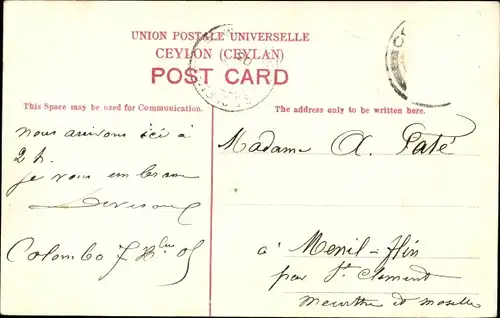 UNION POSTALE UNIVERSELLE
CEYLON (CEYLAN)
POST CARD
This Space may be used for Communication.
The address only to be written here.
nous arrivons ici à
2 h.
je vous embrasse
Colombo 7 Xbre 05
Madame A. Paté
à Menil-flin
par St Clement
Meurthe et Moselle